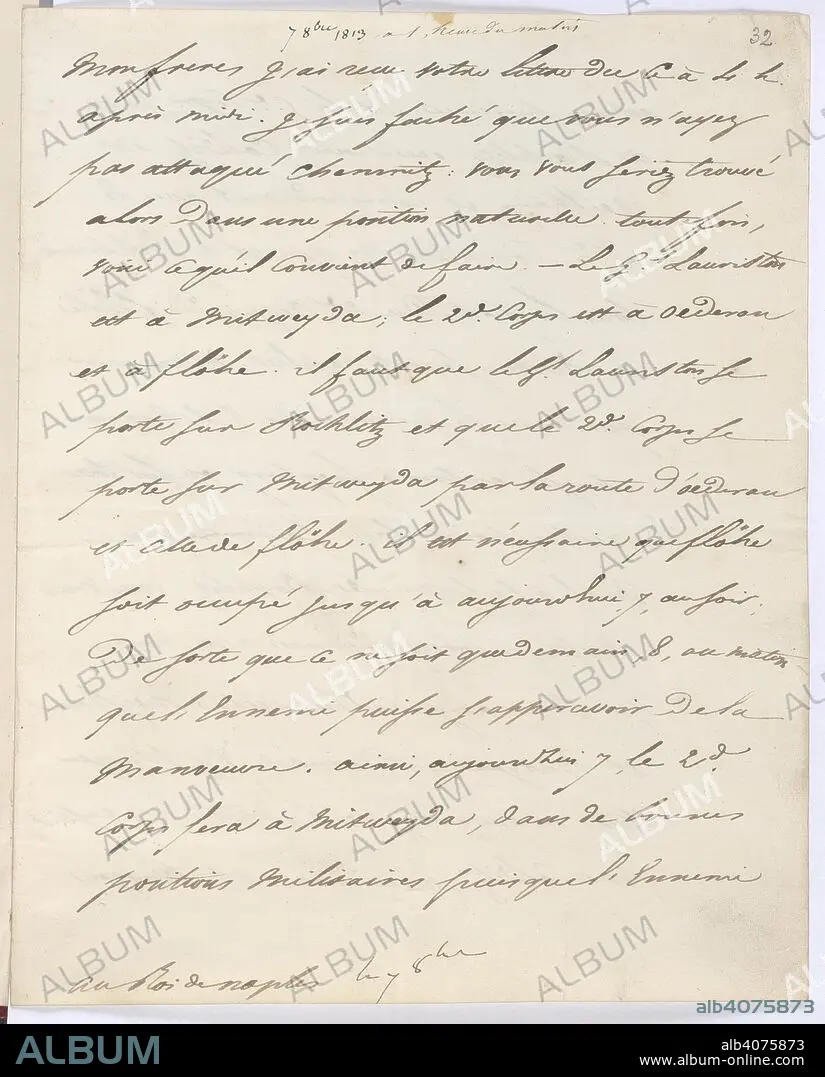 7 8bre 1813 a 1. heure du matin
32
Mon frere, J'ai reçu votre lettre du 6 à 4 h.
après midi. Je suis faché que vous n'ayez
pas attaqué Chemnitz: vous vous seriez trouvé
alors Dans une position naturelle. toutefois,
voici ce qu'il convient de faire. — Le Gl. Lauriston
est à Mitweyda; le 2d. Corps est à Oederau
et à flöhe. il faut que le Gl. Lauriston se
porte sur Rochlitz et que le 2d. Corps se
porte sur Mitweyda par la route d'oederau
et celle de flöhe. il est nécessaire que flöhe
soit occupé jusqu'à aujourdhui 7, au soir;
De sorte que ce ne soit que demain 8, au matin
que l'Ennemi puisse s'appercevoir De la
Manoeuvre. ainsi, aujourdhui 7, le 2d.
Corps sera à Mitweyda, dans de bonnes
positions Militaires puisque l'Ennemi
au Roi de naples le 7 8bre
ALBUM
alb4075873
ALBUM
alb4075873
www.album-online.com